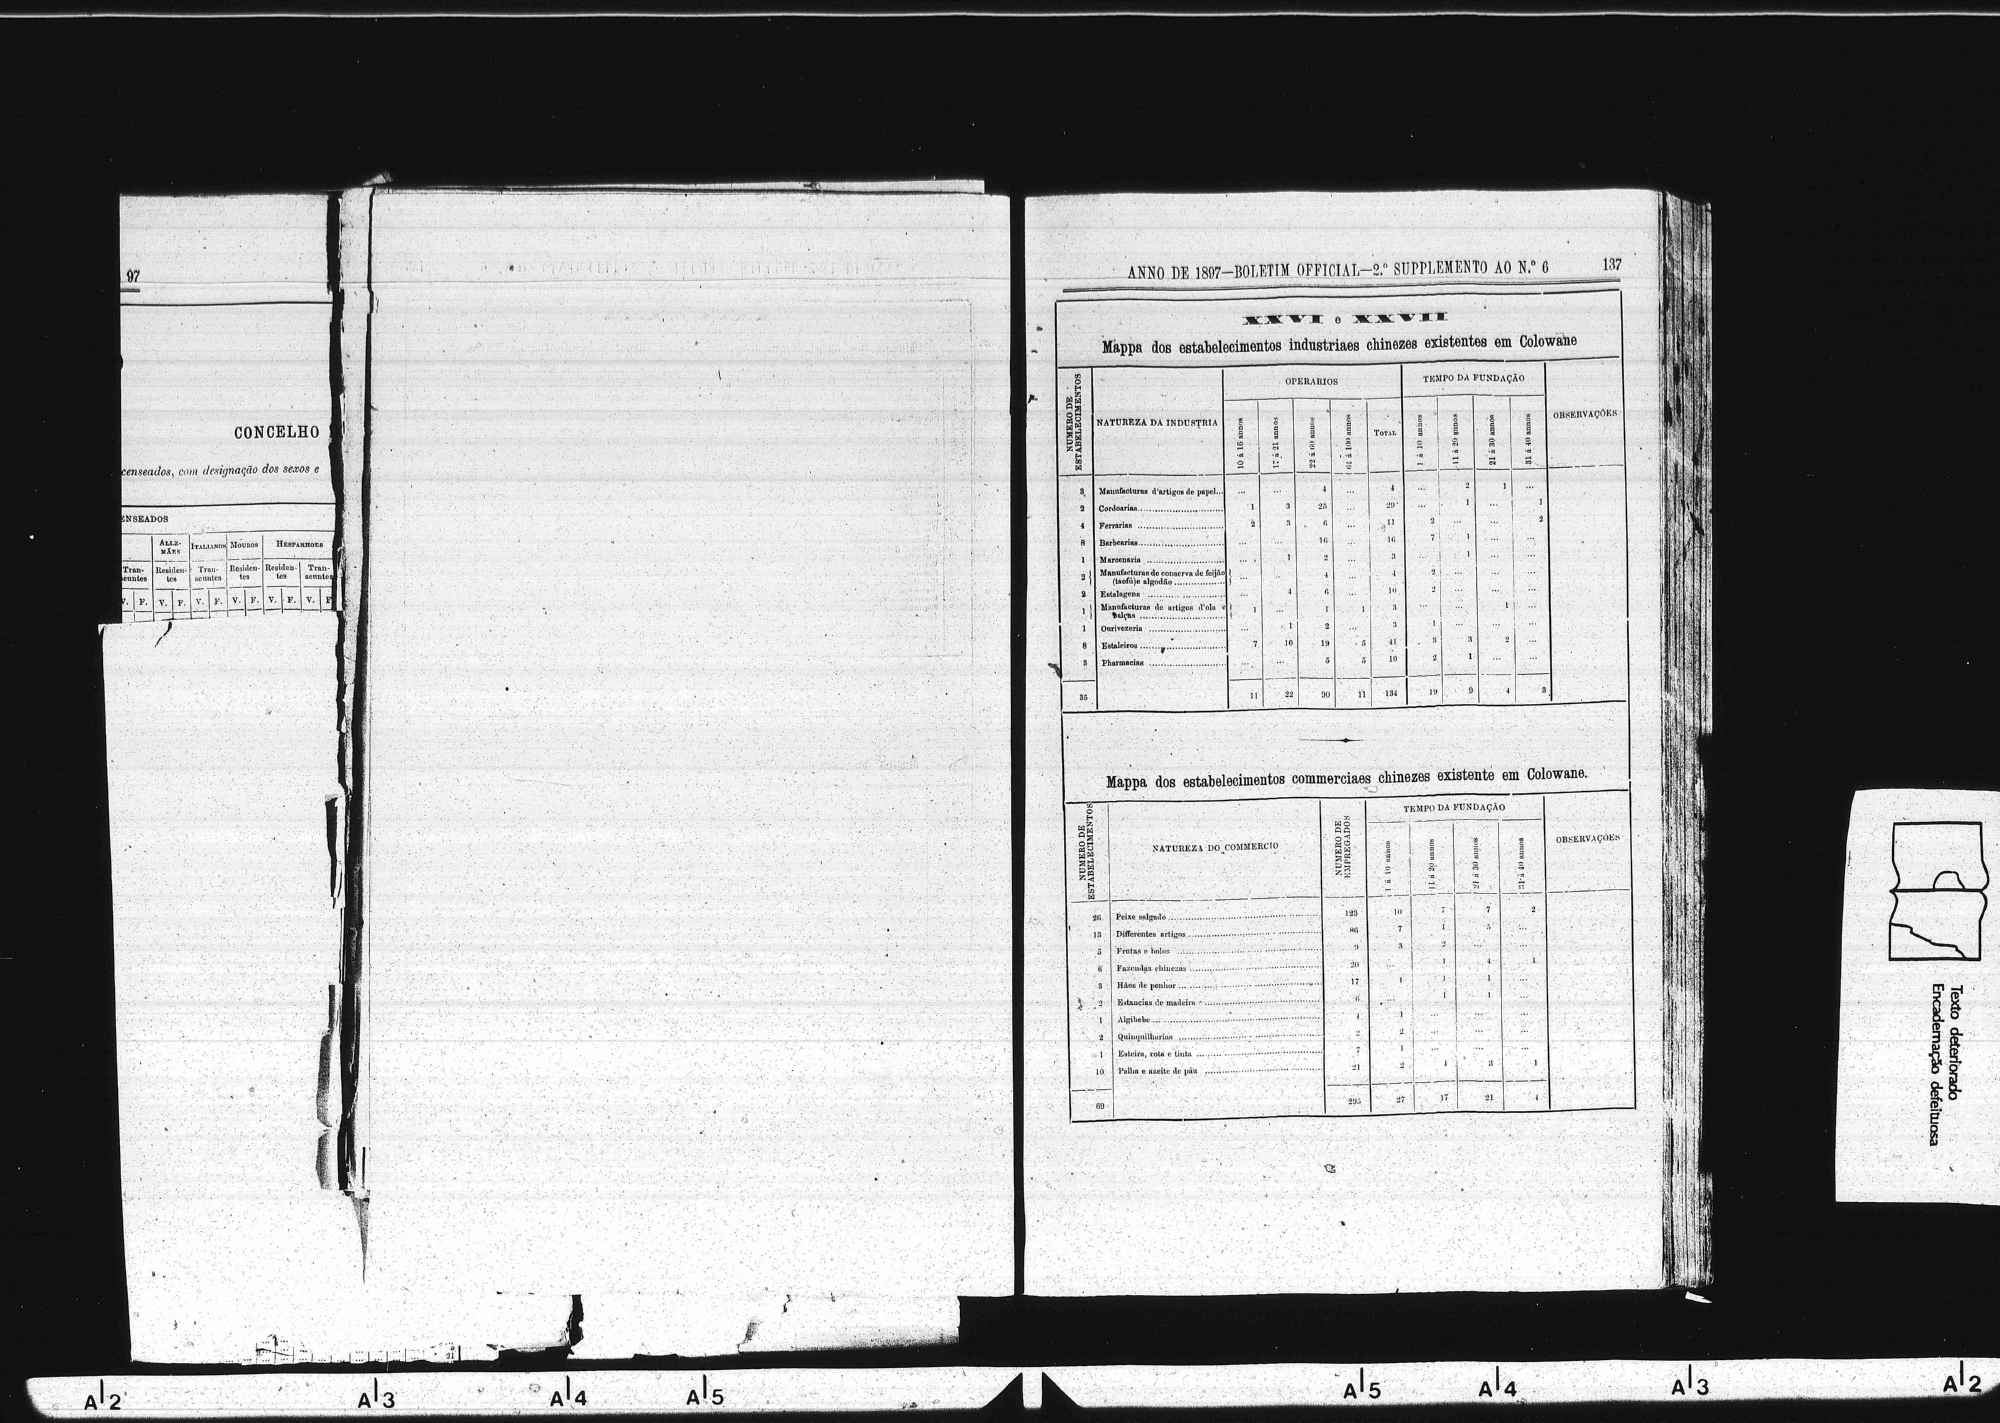 97
CONCELHO
censeados, com designação dos sexos e
ENSEADOS
ALLE-MÃES ITALIANOS MOUROS HESPANHOES
Tran-seuntes Residen-tes Tran-seuntes Residen-tes Residen-tes Tran-seuntes
V. F. V. F. V. F. V. F. V. F. V. F
ANNO DE 1897—BOLETIM OFFICIAL—2.º SUPPLEMENTO AO N.º 6 137
XXVI e XXVII
Mappa dos estabelecimentos industriaes chinezes existentes em Colowane
NUMERO DE ESTABELECIMENTOS NATUREZA DA INDUSTRIA OPERARIOS TEMPO DA FUNDAÇÃO OBSERVAÇÕES
10 á 16 annos 17 á 21 annos 22 á 60 annos 61 á 100 annos TOTAL 1 á 10 annos 11 á 20 annos 21 á 30 annos 31 á 40 annos
3 Manufacturas d'artigos de papel... ... ... 4 ... 4 ... 2 1 ...
2 Cordoarias 1 3 25 ... 29 ... 1 ... 1
4 Ferrarias 2 3 6 ... 11 2 ... ... 2
8 Barbearias ... ... 16 ... 16 7 1 ... ...
1 Marcenaria ... 1 2 ... 3 ... 1 ... ...
2 Manufacturas de conserva de feijão
(taofú)e algodão ... ... 4 ... 4 2 ... ... ...
2 Estalagens ... 4 6 ... 10 2 ... ... ...
1 Manufacturas de artigos d'ola e
balças 1 ... 1 1 3 ... ... 1 ...
1 Ourivezeria ... 1 2 ... 3 1 ... ... ...
8 Estaleiros 7 10 19 5 41 3 3 2 ...
3 Pharmacias ... ... 5 5 10 2 1 ... ...
35 11 22 90 11 134 19 9 4 3
Mappa dos estabelecimentos commerciaes chinezes existente em Colowane.
NUMERO DE ESTABELECIMENTOS NATUREZA DO COMMERCIO NUMERO DE EMPREGADOS TEMPO DA FUNDAÇÃO OBSERVAÇÕES
1 á 10 annos 11 á 20 annos 21 á 30 annos 31 á 40 annos
26 Peixe salgado 123 10 7 7 2
13 Differentes artigos 86 7 1 5 ...
5 Frutas e bolos 9 3 2 ... ...
6 Fazendas chinezas 20 ... 1 4 1
3 Hãos de penhor 17 1 1 1 ...
2 Estancias de madeira 6 ... 1 1 ...
1 Algibebe 4 1 ... ... ...
2 Quinquilharias 2 2 ... ... ...
1 Esteira, rota e tinta 7 1 ... ... ...
10 Palha e azeite de páu 21 2 4 3 1
69 295 27 17 21 4
Texto deteriorado
Encadernação defeituosa
A 2 A 3 A 4 A 5 A 5 A 4 A 3 A 2